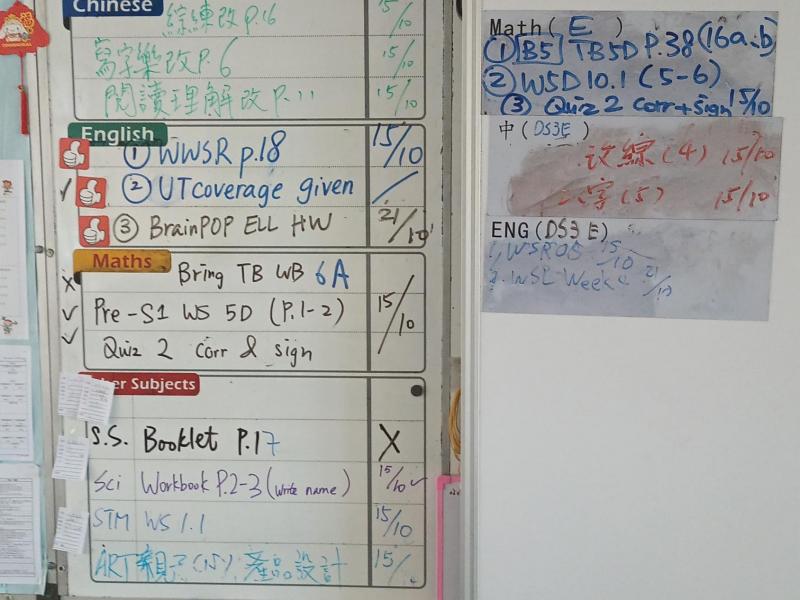 Chinese
綜練改P.16 15/10
寫字樂改P.6 15/10
閱讀理解改P.11 15/10
English
① WWSR p.18 15/10
② UTcoverage given /
③ BrainPOP ELL HW 21/10
Maths
Bring TB WB 6A
Pre-S1 WS 5D (P.1-2) 15/10
Quiz 2 corr & sign
Other Subjects
S.S. Booklet P.17 X
Sci Workbook P.2-3 (write name) 15/10
STM WS 1.1 15/10
ART 親子(15) 產品設計 15/
Math ( E )
① B5 TB5D P.38 (16a.b)
② W5D 10.1 (5-6)
③ Quiz 2 corr + sign 15/10
中 ( DS3E )
改綜 (4) 15/10
字 (5) 15/10
ENG (DS3 E)
1. WSR05 15/10
2. WSL Week 21/10